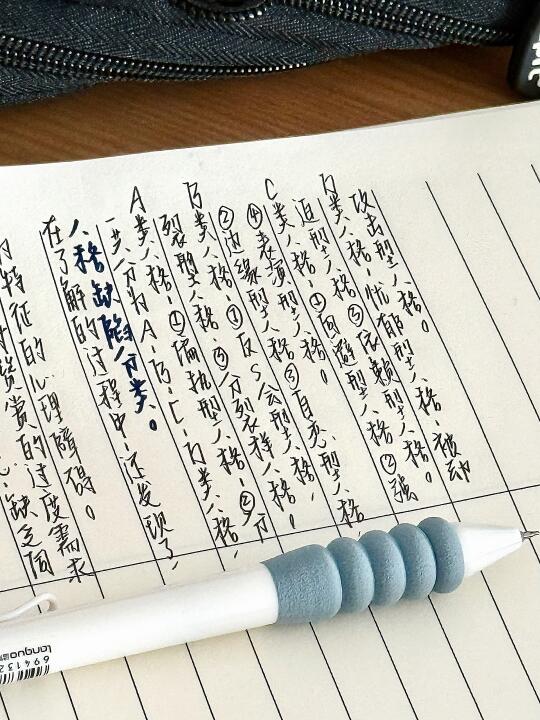 心、缺乏同
赞赏的过度需求
特征的心理障碍。
在了解的过程中,还发现了,
人格缺陷分类。
一共分为A、B、C、D类人格,
A类人格-①偏执型人格-②分
裂型人格.③分裂样人格。
B类人格-①反S会型人格,
②边缘型人格.③自恋型人格,
④表演型人格。
C类人格-①回避型人格②强
迫型人格.③依赖型人格。
D类人格-忧郁型人格-被动
攻击型人格。
694132